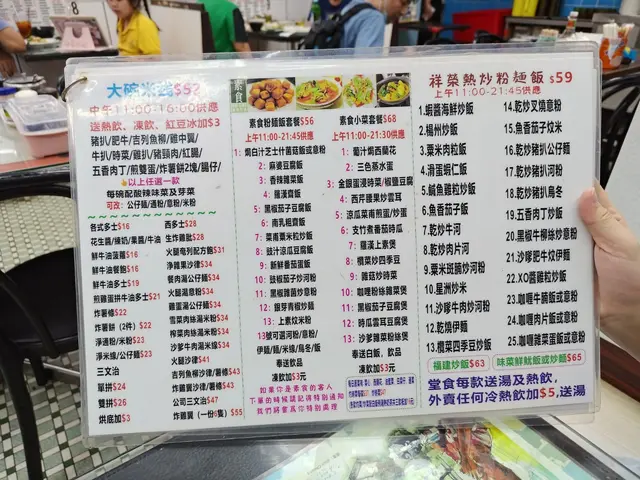 8
大碗米線$52
中午11:00-16:00供應
送熱飲、凍飲、紅豆冰加$3
豬扒/肥牛/吉列魚柳/雞中翼/
牛扒/時菜/雞扒/豬頸肉/紅腸/
五香肉丁/煎雙蛋/炸薯餅2塊/腸仔/
以上任選一款
每碗配酸辣味菜及芽菜
可改: 公仔麵/通粉/意粉/米粉
各式多士$16
花生醬/煉奶/果醬/牛油
鮮牛油菠蘿$16
鮮牛油餐飽$16
鮮牛油多士$19
煎雞蛋拼牛油多士$21
炸薯條$22
炸薯餅 (2件) $22
淨通粉/米粉$23
淨米線/公仔$23
三文治
單拼$24
雙拼$26
烘底加$3
西多士$28
生炸雞批$28
火腿奄列配方飽$31
淨雜果沙律$34
餐肉湯公仔麵$34
火腿湯意粉$34
腸蛋湯公仔麵$34
雪菜肉絲湯米粉$34
榨菜肉絲湯米粉$34
沙爹牛肉湯米線$34
火腿沙律$41
吉列魚柳沙律/薯條$43
炸雞翼沙律/薯條$43
公司三文治$47
炸雞翼 (一份6隻) $55
素食
素食粉麵飯套餐$56
上午11:00-21:45供應
1: 焗白汁芝士什菌菇飯或意粉
2: 麻婆豆腐飯
3: 香辣雜菜飯
4: 羅漢齋飯
5: 黑椒茄子豆腐飯
6: 南乳粗齋飯
7: 菜甫粟米粒炒飯
8: 豉汁涼瓜豆腐飯
9: 新鮮番茄蛋飯
10: 豉椒茄子炒河粉
11: 黑椒雜菌炒意粉
12: 銀芽青椒炒麵
13: 上素炆米粉
13號可選河粉/意粉/
伊麵/麵/米線/烏冬/飯
奉送飲品
凍飲加3元
如果你是素食的客人
下單的時候請記得特別通知
我們將會為你特別處理
素食小菜套餐$68
上午11:00-21:30供應
1: 薑汁焗西蘭花
2: 三色蒸水蛋
3: 金銀蛋浸時菜/椒鹽豆腐
4: 西芹腰果炒雲耳
5: 涼瓜菜甫煎蛋/炒蛋
6: 支竹煮番茄時菜
7: 羅漢上素煲
8: 欖菜炒四季豆
9: 雜菇炒時菜
10: 咖喱粉絲雜菜煲
11: 黑椒茄子豆腐煲
12: 時瓜雲耳豆腐煲
13: 沙爹雜菜粉絲煲
奉送白飯, 飲品
凍飲加3元
祥榮熱炒粉麵飯 $59
上午11:00-21:45供應
1.蝦醬海鮮炒飯
2.揚州炒飯
3.粟米肉粒飯
4.滑蛋蝦仁飯
5.鹹魚雞粒炒飯
6.魚香茄子飯
7.乾炒牛河
8.乾炒肉片河
9.粟米斑腩炒河粉
10.星洲炒米
11.沙爹牛肉炒河粉
12.乾燒伊麵
13.欖菜四季豆炒飯
14.乾炒叉燒意粉
15.魚香茄子炆米
16.乾炒豬扒公仔麵
17.乾炒豬扒河粉
18.乾炒豬扒烏冬
19.五香肉丁炒飯
20.黑椒牛柳絲炒意粉
21.沙爹肥牛炆伊麵
22.XO醬雞粒炒飯
23.咖喱牛腩飯或意粉
24.咖喱肉片飯或意粉
25.咖喱雜菜蛋飯或意粉
福建炒飯$63
味菜鮮魷飯或炒麵$65
堂食每款送湯及熱飲,
外賣任何冷熱飲加$5,送湯